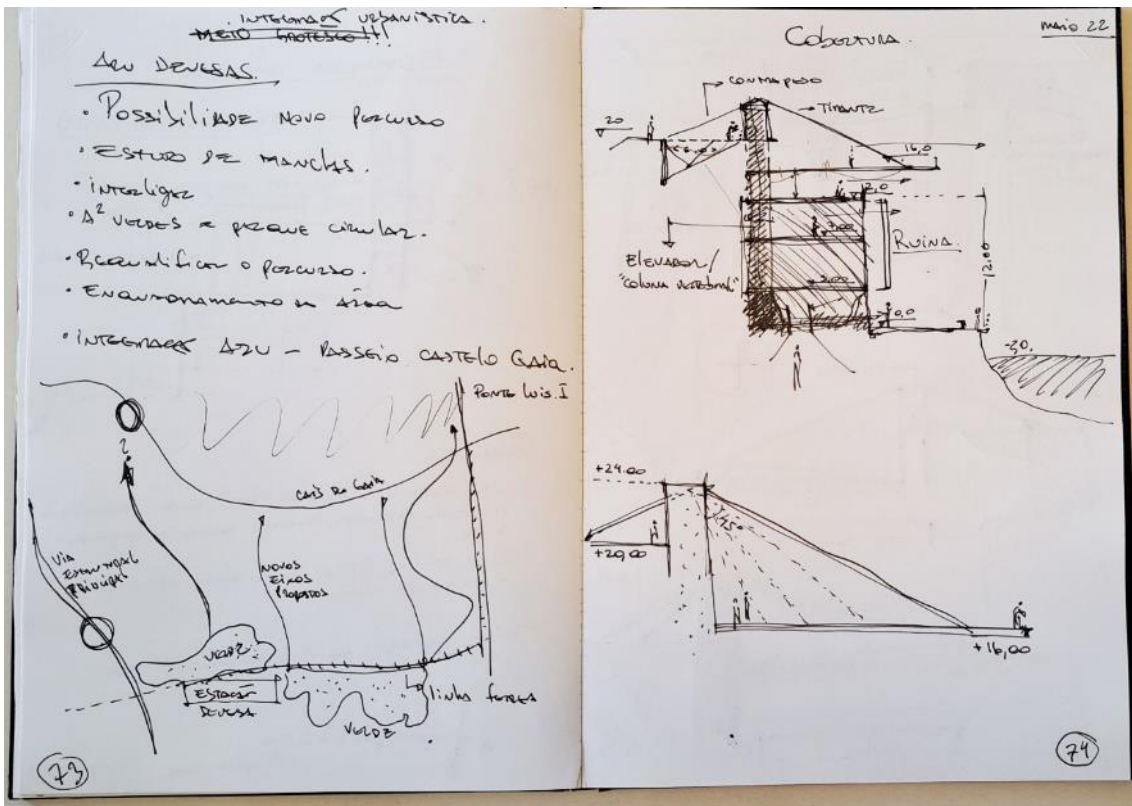 INTEGRAÇÃO URBANÍSTICA.
METIO GROTESCO!!!
ARU DEVESAS.
• POSSIBILIDADE NOVO PERCURSO
• ESTUDO DE MANCHAS.
• INTERLIGAR
• A² VERDES e PARQUE CIRCULAR.
• REQUALIFICAR o PERCURSO.
• INTEGRAÇÃO ARU – PASSEIO CASTELO GAIA.
PONTE LUIS. I
?
CAIS DE GAIA
VIA
ESTRUTURAL
PRINCIPAL
NOVOS
EIXOS
PROPOSTOS
VERDE
ESTAÇÃO
DEVESA
linha FERREA
VERDE
73
COBERTURA.
MAIO 22
CONTRAPESO
TIRANTE
20
16,0
12,0
RUÍNA.
ELEVADOR/
"COLUNA VERTEBRAL"
12.00
-2,0.
+24.00
+20,00
+16,00
74